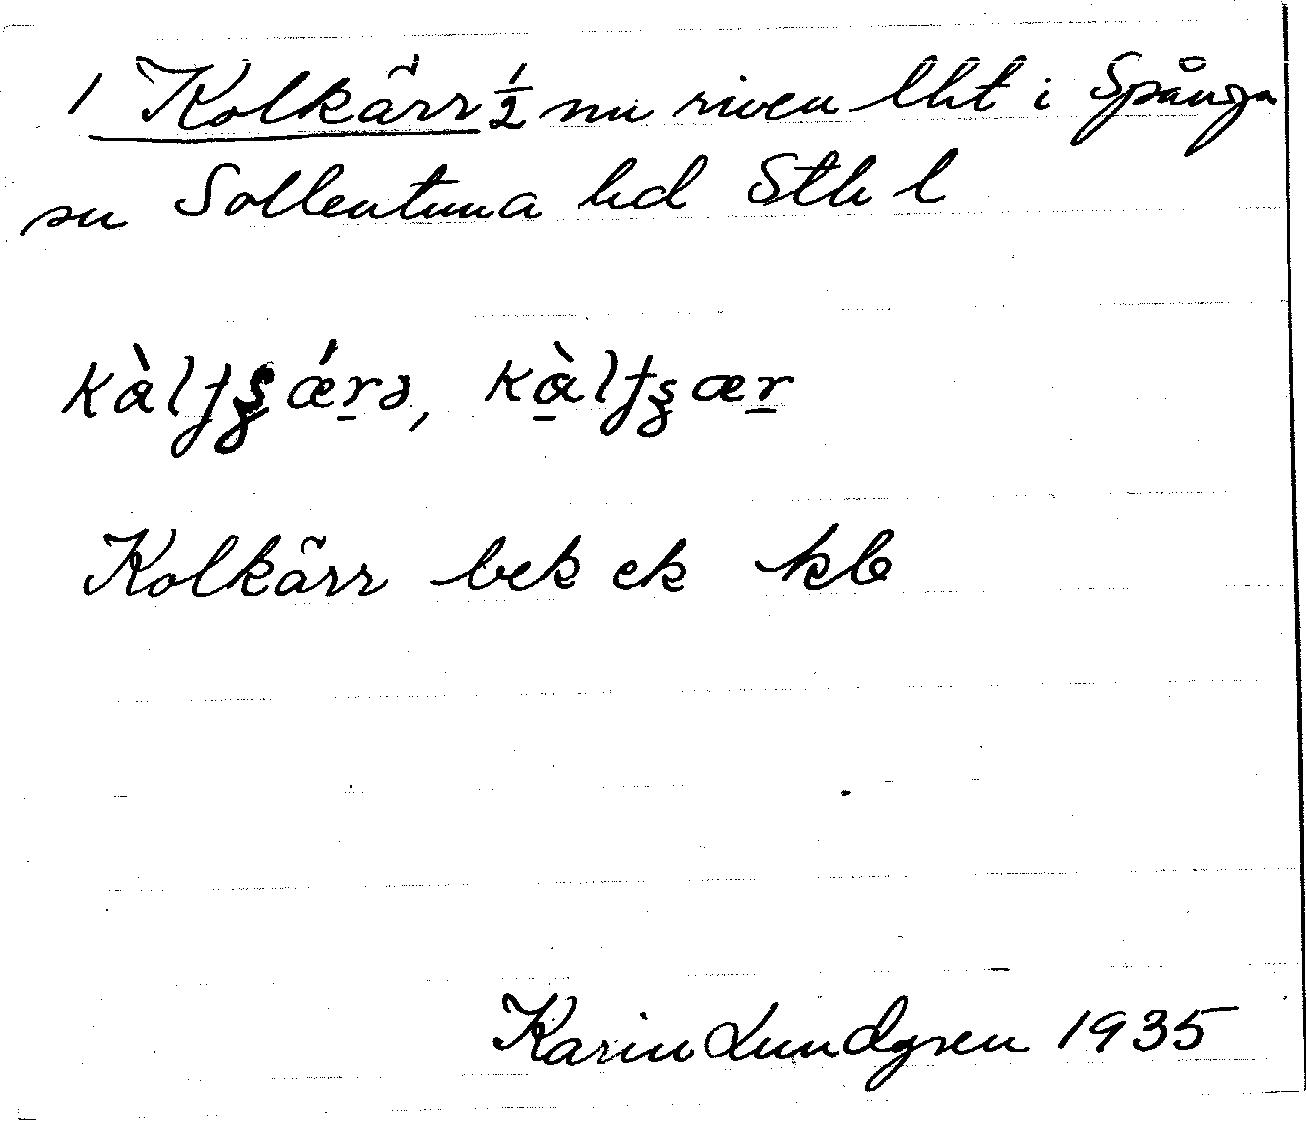 1 Kolkärr ½ nu riven lht i Spånga
sn Sollentuna hd Sth l
Kolkärr bek ek kb
Karin Lundgren 1935